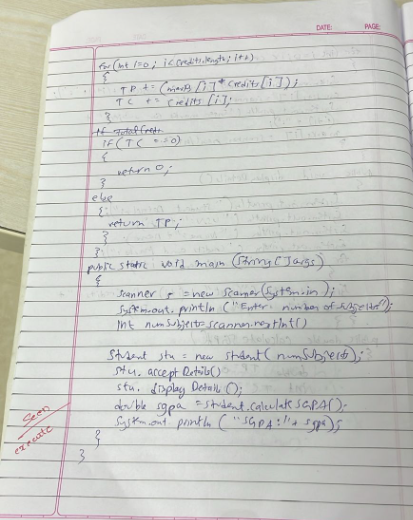 DATE: PAGE:
for (int i=0; i<credits.length; i++)
{
TP += (marks[i] * credits[i]);
TC += credits[i];
}
if (TC ==0)
{
return 0;
}
else
{
return TP;
}
}
public static void main (String []args)
{
Scanner = new Scanner(System.in);
System.out.println ("Enter number of subjects");
int numSubjects=scanner.nextInt()
Student stu = new Student (numSubjects);
stu.acceptDetails()
stu.displayDetails();
double sgpa =student.calculateSGPA();
System.out.println ("SGPA:"+ sgpa);
}
}
Seen
execute